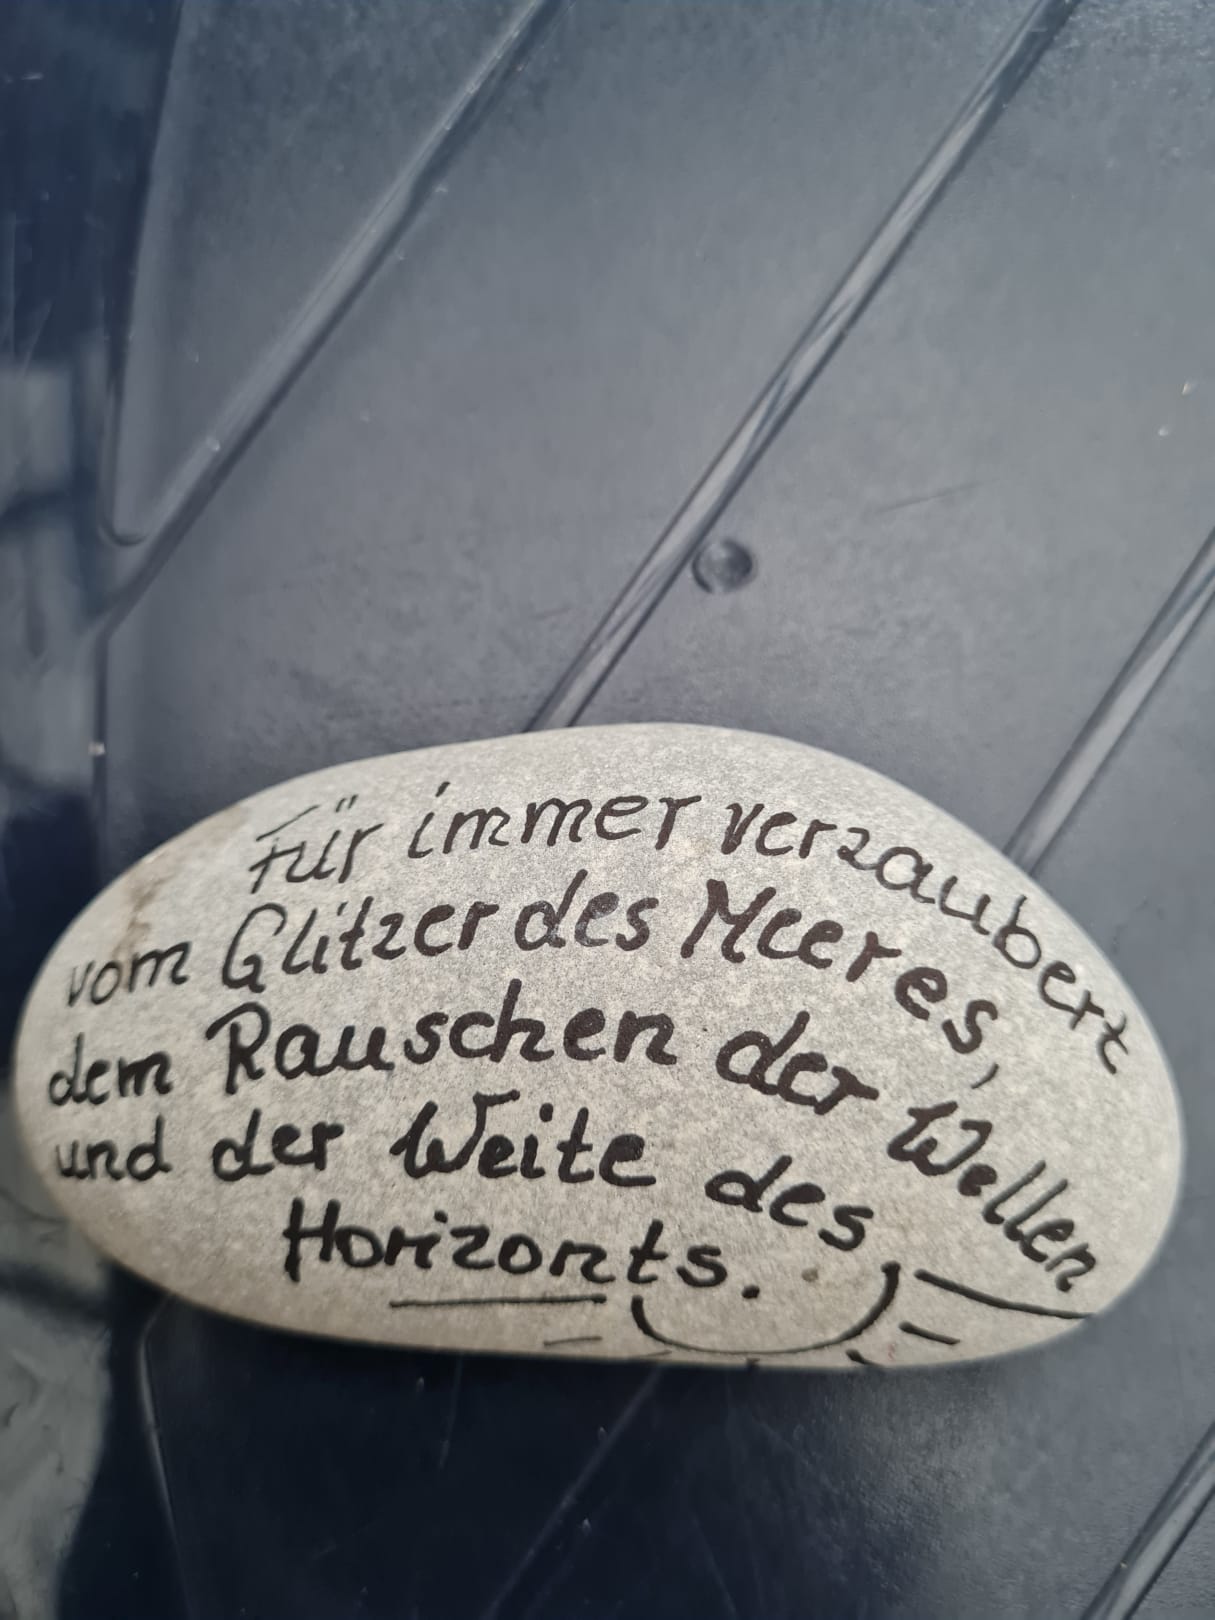 Für immer verzaubert
vom Glitzer des Meeres,
dem Rauschen der Wellen
und der Weite des
Horizonts.